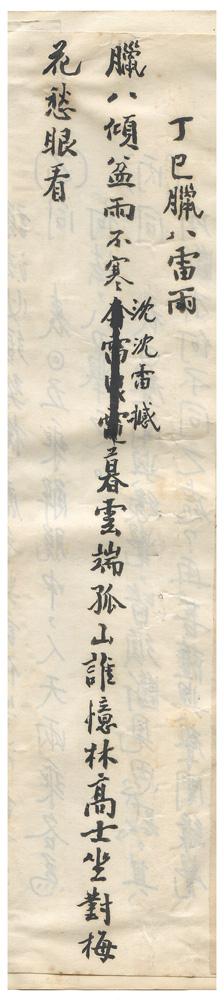 丁巳臘八雷雨
臘八傾盆雨不寒沈沈雷撼暮雲端孤山誰憶林高士坐對梅
花愁眼看